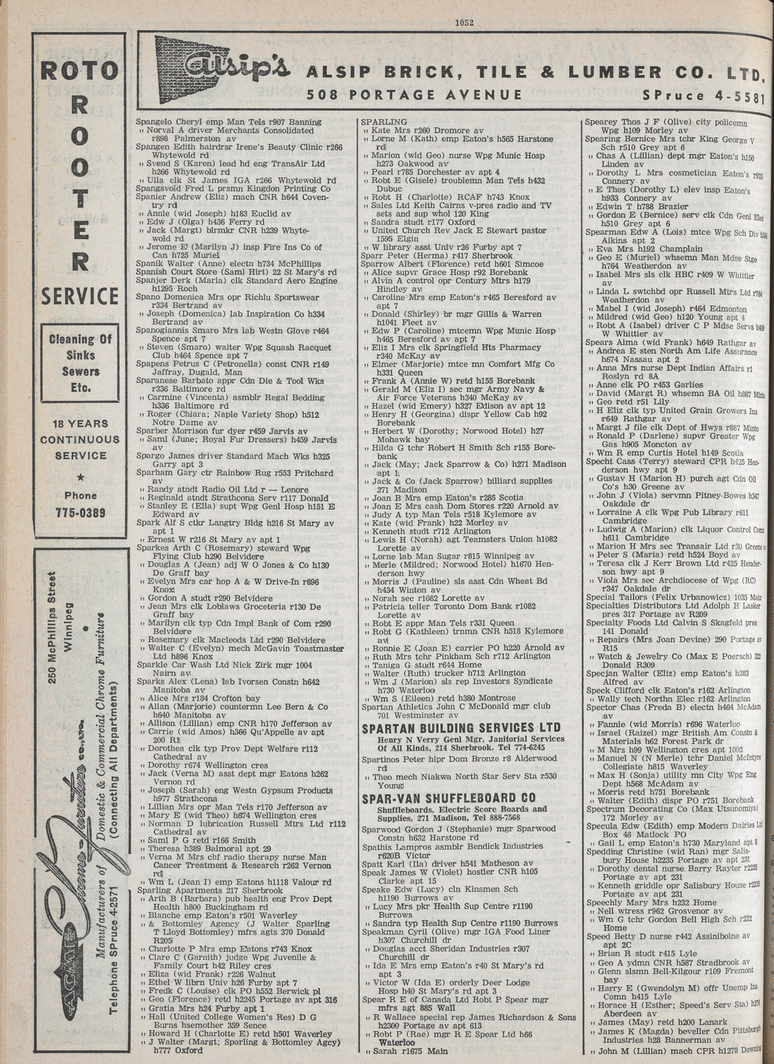 1052
ROTO
R
O
O
T
E
R
SERVICE
Cleaning Of
Sinks
Sewers
Etc.
18 YEARS
CONTINUOUS
SERVICE
★
Phone
775-0389
250 McPhillips Street
Winnipeg
ACME Chrome Furniture CO. LTD.
Manufacturers of Domestic & Commercial Chrome Furniture
Telephone SPruce 4-2571 (Connecting All Departments)
Alsip's ALSIP BRICK, TILE & LUMBER CO. LTD.
508 PORTAGE AVENUE SPruce 4-5581
Spangelo Cheryl emp Man Tels r907 Banning
" Norval A driver Merchants Consolidated
r898 Palmerston av
Spangen Edith hairdrsr Irene's Beauty Clinic r266
Whytewold rd
" Svend S (Karen) lead hd eng TransAir Ltd
h266 Whytewold rd
" Ulla clk St James IGA r266 Whytewold rd
Spangsvold Fred L prsmn Kingdon Printing Co
Spanier Andrew (Eliz) mach CNR h644 Coven-
try rd
" Annie (wid Joseph) h183 Euclid av
" Edw J (Olga) h436 Ferry rd
" Jack (Margt) blrmkr CNR h239 Whyte-
wold rd
" Jerome E (Marilyn J) insp Fire Ins Co of
Can h725 Muriel
Spanik Walter (Anne) electn h734 McPhillips
Spanish Court Store (Saml Hirt) 22 St Mary's rd
Spanjer Derk (Maria) clk Standard Aero Engine
h1295 Roch
Spano Domenica Mrs opr Richlu Sportswear
r334 Bertrand av
" Joseph (Domenica) lab Inspiration Co h334
Bertrand av
Spanogiannis Smaro Mrs lab Westn Glove r464
Spence apt 7
" Steven (Smaro) waiter Wpg Squash Racquet
Club h464 Spence apt 7
Spapens Petrus C (Petronella) const CNR r149
Jaffray, Dugald, Man
Sparanese Barbato appr Cdn Die & Tool Wks
r336 Baltimore rd
" Carmine (Vincenta) asmblr Regal Bedding
h336 Baltimore rd
" Roger (Chiara; Naple Variety Shop) h512
Notre Dame av
Sparber Morrison fur dyer r459 Jarvis av
" Saml (June; Royal Fur Dressers) h459 Jarvis
av
Spargo James driver Standard Mach Wks h325
Garry apt 3
Sparham Gary ctr Rainbow Rug r553 Pritchard
av
" Randy atndt Radio Oil Ltd r — Lenore
" Reginald atndt Strathcona Serv r117 Donald
" Stanley E (Ella) supt Wpg Genl Hosp h151 E
Edward av
Spark Alf S ctkr Langtry Bldg h216 St Mary av
apt 1
" Ernest W r216 St Mary av apt 1
Sparkes Arth C (Rosemary) steward Wpg
Flying Club h290 Belvidere
" Douglas A (Jean) adj W O Jones & Co h130
De Graff bay
" Evelyn Mrs car hop A & W Drive-In r696
Knox
" Gordon A studt r290 Belvidere
" Jean Mrs clk Loblaws Groceteria r130 De
Graff bay
" Marilyn clk typ Cdn Impl Bank of Com r290
Belvidere
" Rosemary clk Macleods Ltd r290 Belvidere
" Walter C (Evelyn) mech McGavin Toastmaster
Ltd h896 Knox
Sparkle Car Wash Ltd Nick Zirk mgr 1004
Nairn av
Sparks Alex (Lena) lab Ivorsen Constn h642
Manitoba av
" Alice Mrs r184 Crofton bay
" Allan (Marjorie) countermn Lee Bern & Co
h640 Manitoba av
" Allison (Lillian) emp CNR h170 Jefferson av
" Carrie (wid Amos) h366 Qu'Appelle av apt
200 RE
" Dorothea clk typ Prov Dept Welfare r112
Cathedral av
" Dorothy r674 Wellington cres
" Jack (Verna M) asst dept mgr Eatons h262
Vernon rd
" Joseph (Sarah) eng Westn Gypsum Products
h977 Strathcona
" Lillian Mrs opr Man Tels r170 Jefferson av
" Mary E (wid Theo) h674 Wellington cres
" Norman D lubrication Russell Mtrs Ltd r112
Cathedral av
" Saml P G retd r166 Smith
" Theresa h389 Balmoral apt 29
" Verna M Mrs chf radio therapy nurse Man
Cancer Treatment & Research r262 Vernon
rd
" Wm L (Jean I) emp Eatons h1118 Valour rd
Sparling Apartments 217 Sherbrook
" Arth B (Barbara) pub health eng Prov Dept
Health h800 Buckingham rd
" Blanche emp Eaton's r501 Waverley
" & Bottomley Agency (J Walter Sparling
T Lloyd Bottomley) mfrs agts 370 Donald
R205
" Charlotte P Mrs emp Eatons r743 Knox
" Clare C (Garnith) judge Wpg Juvenile &
Family Court h42 Riley cres
" Eliza (wid Frank) r226 Walnut
" Ethel W librn Univ h26 Furby apt 7
" Fredk C (Louise) clk PO h552 Berwick pl
" Geo (Florence) retd h2245 Portage av apt 316
" Gratia Mrs h24 Furby apt 1
" Hall (United College Women's Res) D G
Burns hsemother 359 Senoe
" Howard H (Charlotte E) retd h501 Waverley
" J Walter (Margt; Sparling & Bottomley Agcy)
h777 Oxford
SPARLING
" Kate Mrs r260 Dromore av
" Lorne M (Kath) emp Eaton's h565 Harstone
rd
" Marion (wid Geo) nurse Wpg Munic Hosp
h273 Oakwood av
" Pearl r785 Dorchester av apt 4
" Robt E (Gisele) troublemn Man Tels h432
Dubuc
" Robt H (Charlotte) RCAF h743 Knox
" Sales Ltd Keith Cairns v-pres radio and TV
sets and sup whol 120 King
" Sandra studt r177 Oxford
" United Church Rev Jack E Stewart pastor
1595 Elgin
" W library asst Univ r26 Furby apt 7
Sparr Peter (Herma) r417 Sherbrook
Sparrow Albert (Florence) retd h501 Simcoe
" Alice supvr Grace Hosp r92 Borebank
" Alvin A control opr Century Mtrs h179
Hindley av
" Caroline Mrs emp Eaton's r465 Beresford av
apt 7
" Donald (Shirley) br mgr Gillis & Warren
h1041 Fleet av
" Edw P (Caroline) mtcemn Wpg Munic Hosp
h465 Beresford av apt 7
" Eliz I Mrs clk Springfield Hts Pharmacy
r340 McKay av
" Elmer (Marjorie) mtce mn Comfort Mfg Co
h331 Queen
" Frank A (Annie W) retd h155 Borebank
" Gerald M (Eliz I) sec mgr Army Navy &
Air Force Veterans h340 McKay av
" Hazel (wid Emery) h327 Edison av apt 12
" Henry H (Georgina) dispr Yellow Cab h92
Borebank
" Herbert W (Dorothy; Norwood Hotel) h27
Mohawk bay
" Hilda G tchr Robert H Smith Sch r155 Bore-
bank
" Jack (May; Jack Sparrow & Co) h271 Madison
apt 1
" Jack & Co (Jack Sparrow) billiard supplies
271 Madison
" Joan B Mrs emp Eaton's r285 Scotia
" Joan E Mrs cash Dom Stores r220 Arnold av
" Judy A typ Man Tels r518 Kylemore av
" Kate (wid Frank) h22 Morley av
" Kenneth studt r712 Arlington
" Lewis H (Norah) agt Teamsters Union h1082
Lorette av
" Lorne lab Man Sugar r815 Winnipeg av
" Merle (Mildred; Norwood Hotel) h1670 Hen-
derson hwy
" Morris J (Pauline) sls asst Cdn Wheat Bd
h434 Winton av
" Norah sec r1082 Lorette av
" Patricia teller Toronto Dom Bank r1082
Lorette av
" Robt E appr Man Tels r331 Queen
" Robt G (Kathleen) trnmn CNR h518 Kylemore
av
" Ronnie E (Joan E) carrier PO h220 Arnold av
" Ruth Mrs tchr Pinkham Sch r712 Arlington
" Taniga G studt r644 Home
" Walter (Ruth) trucker h712 Arlington
" Wm J (Marion) sls rep Investors Syndicate
h730 Waterloo
" Wm S (Eileen) retd h380 Montrose
Spartan Athletics John C McDonald mgr club
701 Westminster av
SPARTAN BUILDING SERVICES LTD
Henry N Verry Genl Mgr, Janitorial Services
Of All Kinds, 214 Sherbrook, Tel 774-6245
Spartinos Peter hlpr Dom Bronze r8 Alderwood
rd
" Theo mech Niakwa North Star Serv Sta r530
Young
SPAR-VAN SHUFFLEBOARD CO
Shuffleboards, Electric Score Boards and
Supplies, 271 Madison, Tel 888-7568
Sparwood Gordon J (Stephanie) mgr Sparwood
Constn h632 Harstone rd
Spathis Lampros asmblr Bendick Industries
r620B Victor
Spatt Karl (Ila) driver h541 Matheson av
Speak James W (Violet) hostler CNR h105
Clarke apt 15
Speake Edw (Lucy) cln Kinsmen Sch
h1190 Burrows av
" Lucy Mrs pkr Health Sup Centre r1190
Burrows
" Sandra typ Health Sup Centre r1190 Burrows
Speakman Cyril (Olive) mgr IGA Food Liner
h307 Churchill dr
" Douglas acct Sheridan Industries h307
Churchill dr
" Ida E Mrs emp Eaton's r40 St Mary's rd
apt 3
" Victor W (Ida E) orderly Deer Lodge
Hosp h40 St Mary's rd apt 3
Spear R E of Canada Ltd Robt P Spear mgr
mfrs agt 885 Wall
" R Wallace special rep James Richardson & Sons
h2300 Portage av apt 613
" Robt P (Rae) mgr R E Spear Ltd h66
Waterloo
" Sarah r1675 Main
Spearey Thos J F (Olive) city policemn
Wpg h109 Morley av
Spearing Bernice Mrs tchr King George V
Sch r510 Grey apt 6
" Chas A (Lillian) dept mgr Eaton's h150
Linden av
" Dorothy L Mrs cosmetician Eaton's r933
Connery av
" E Thos (Dorothy L) elev insp Eaton's
h933 Connery av
" Edwin T h788 Brazier
" Gordon E (Bernice) serv clk Cdn Genl Elec
h510 Grey apt 6
Spearman Edw A (Lois) mtce Wpg Sch Div
Alkins apt 2
" Eva Mrs h192 Champlain
" Geo E (Muriel) whsemn Man Mdse Stge
h764 Weatherdon av
" Isabel Mrs sls clk HBC r409 W Whittier
av
" Linda L swtchbd opr Russell Mtrs Ltd r764
Weatherdon av
" Mabel I (wid Joseph) r464 Edmonton
" Mildred (wid Geo) h120 Young apt 4
" Robt A (Isabel) driver C P Mdse Servs
W Whittier av
Spears Alma (wid Frank) h649 Rathgar av
" Andrea E sten North Am Life Assurance
h674 Nassau apt 2
" Anna Mrs nurse Dept Indian Affairs r1
Roslyn rd 8A
" Anne clk PO r453 Garlies
" David (Margt R) whsemn BA Oil h887 Minto
" Geo retd r51 Lily
" H Eliz clk typ United Grain Growers Ins
r649 Rathgar av
" Margt J file clk Dept of Hwys r887 Minto
" Ronald P (Darlene) supvr Greater Wpg
Gas h905 Moncton av
" Wm R emp Curtis Hotel h149 Scotia
Specht Cass (Terry) steward CPR h425 Hen-
derson hwy apt 9
" Gustav H (Marion H) purch agt Cdn Oil
Co's h30 Greene av
" John J (Viola) servmn Pitney-Bowes h347
Oakdale dr
" Lorraine A clk Wpg Pub Library r611
Cambridge
" Ludwig A (Marion) clk Liquor Control Comn
h611 Cambridge
" Marion H Mrs sec Transair Ltd r30 Greene av
" Peter S (Maria) retd h524 Boyd av
" Teresa clk J Kerr Brown Ltd r425 Hender-
son hwy apt 9
" Viola Mrs sec Archdiocese of Wpg (RC)
r347 Oakdale dr
Special Tailors (Felix Urbanowicz) 1035 Main
Specialties Distributors Ltd Adolph H Lasker
pres 317 Portage av R209
Specialty Foods Ltd Calvin S Skagfeld pres
141 Donald
" Repairs (Mrs Joan Devine) 290 Portage av
R15
" Watch & Jewelry Co (Max E Poersch)
Donald R309
Specjan Walter (Eliz) emp Eaton's h383
Alfred av
Speck Clifford clk Eaton's r162 Arlington
" Wally tech North Elec r162 Arlington
Spector Chas (Freda B) electn h464 McAdam
av
" Fannie (wid Morris) r696 Waterloo
" Israel (Raizel) mgr British Am Constn &
Materials h62 Forest Park dr
" M Mrs h99 Wellington cres apt 1002
" Manuel N (N Merle) tchr Daniel McIntyre
Collegiate h815 Waverley
" Max H (Sonja) utility mn City Wpg Eng
Dept h568 McAdam av
" Morris retd h751 Borebank
" Walter (Edith) dispr PO r751 Borebank
Spectrum Decorating Co (Max Utsunomiya)
172 Morley av
Specula Edw (Edith) emp Modern Dairies Ltd
Box 46 Matlock PO
" Gail L emp Eaton's h730 Maryland apt 8
Spedding Christine (wid Ran) mgr Salis-
bury House h2235 Portage av apt 231
" Dorothy dental nurse Barry Rayter r2235
Portage av apt 231
" Kenneth griddle opr Salisbury House r2235
Portage av apt 231
Speechly Mary Mrs h232 Home
" Nell wtress r962 Grosvenor av
" Wm G tchr Gordon Bell High Sch r232
Home
Speed Betty D nurse r442 Assiniboine av
apt 2C
" Brian R studt r415 Lyle
" Geo A ydmn CNR h587 Stradbrook av
" Glenn slsmn Bell-Kilgour r109 Fremont
bay
" Harry E (Gwendolyn M) offr Unemp Ins
Comn h415 Lyle
" Horace H (Esther; Speed's Serv Sta)
Aberdeen av
" James (May) retd h200 Lanark
" James K (Magda) beveller Cdn Pittsburgh
Industries h28 Bannerman av
" John M (Lillian) mach CPR h1278 Downing